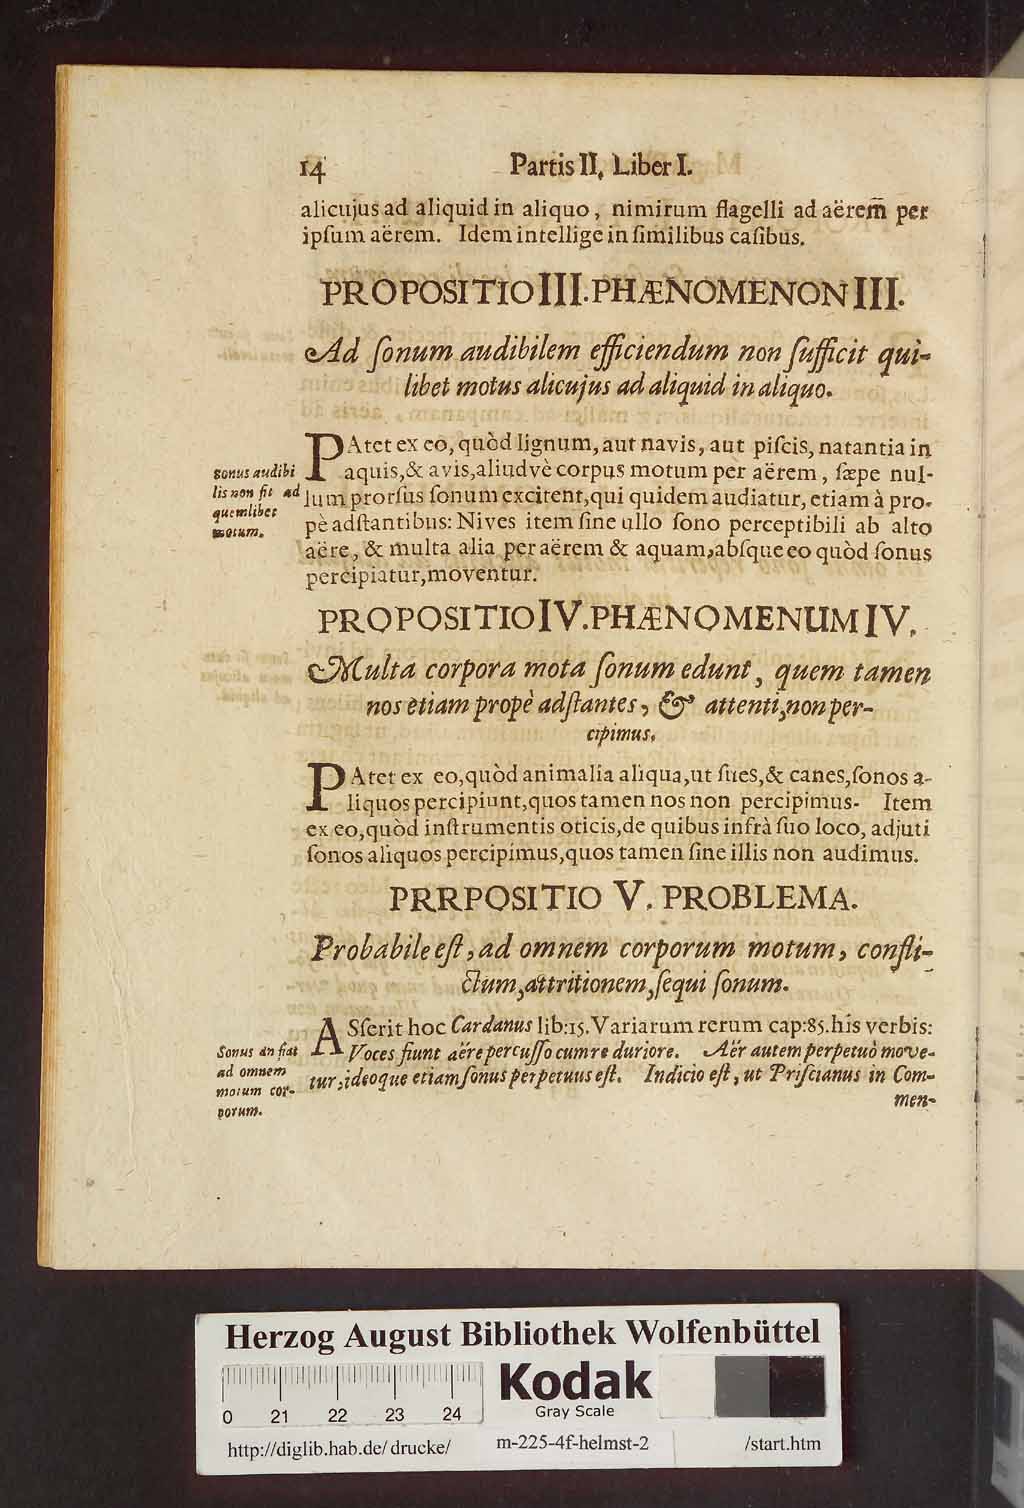 14 Partis II. Liber I.
alicujus ad aliquid in aliquo, nimirum flagelli ad aërem̃ per
ipſum aërem. Idem intellige in ſimilibus caſibus.
PROPOSITIO III. PHÆNOMENON III.
Ad ſonum audibilem efficiendum non ſufficit qui-
libet motus alicujus ad aliquid in aliquo.
PAtet ex eo, quòd lignum, aut navis, aut piſcis, natantia in
aquis, & avis, aliudvè corpus motum per aërem, ſæpe nul-
lum prorſus ſonum excitent, qui quidem audiatur, etiam à pro-
pè adſtantibus: Nives item ſine ullo ſono perceptibili ab alto
aëre, & multa alia per aërem & aquam, abſque eo quòd ſonus
percipiatur, moventur.
Sonus audibi
lis non fit ad
quemlibet
motum.
PROPOSITIO IV. PHÆNOMENUM IV.
Multa corpora mota ſonum edunt, quem tamen
nos etiam propè adſtantes, & attenti, non per-
cipimus.
PAtet ex eo, quòd animalia aliqua, ut ſues, & canes, ſonos a-
liquos percipiunt, quos tamen nos non percipimus. Item
ex eo, quòd inſtrumentis oticis, de quibus infrà ſuo loco, adjuti
ſonos aliquos percipimus, quos tamen ſine illis non audimus.
PRRPOSITIO V. PROBLEMA.
Probabile eſt, ad omnem corporum motum, confli-
ctum, attritionem, ſequi ſonum.
ASſerit hoc Cardanus lib: 15. Variarum rerum cap: 85. his verbis:
Voces fiunt aëre percuſſo cum re duriore. Aër autem perpetuò move-
tur, ideoque etiam ſonus perpetuus eſt. Indicio eſt, ut Priſcianus in Com-
men-
Sonus an fiat
ad omnem
motum cor-
porum.
Herzog August Bibliothek Wolfenbüttel
0 21 22 23 24
Kodak
Gray Scale
http://diglib.hab.de/drucke/ m-225-4f-helmst-2 /start.htm